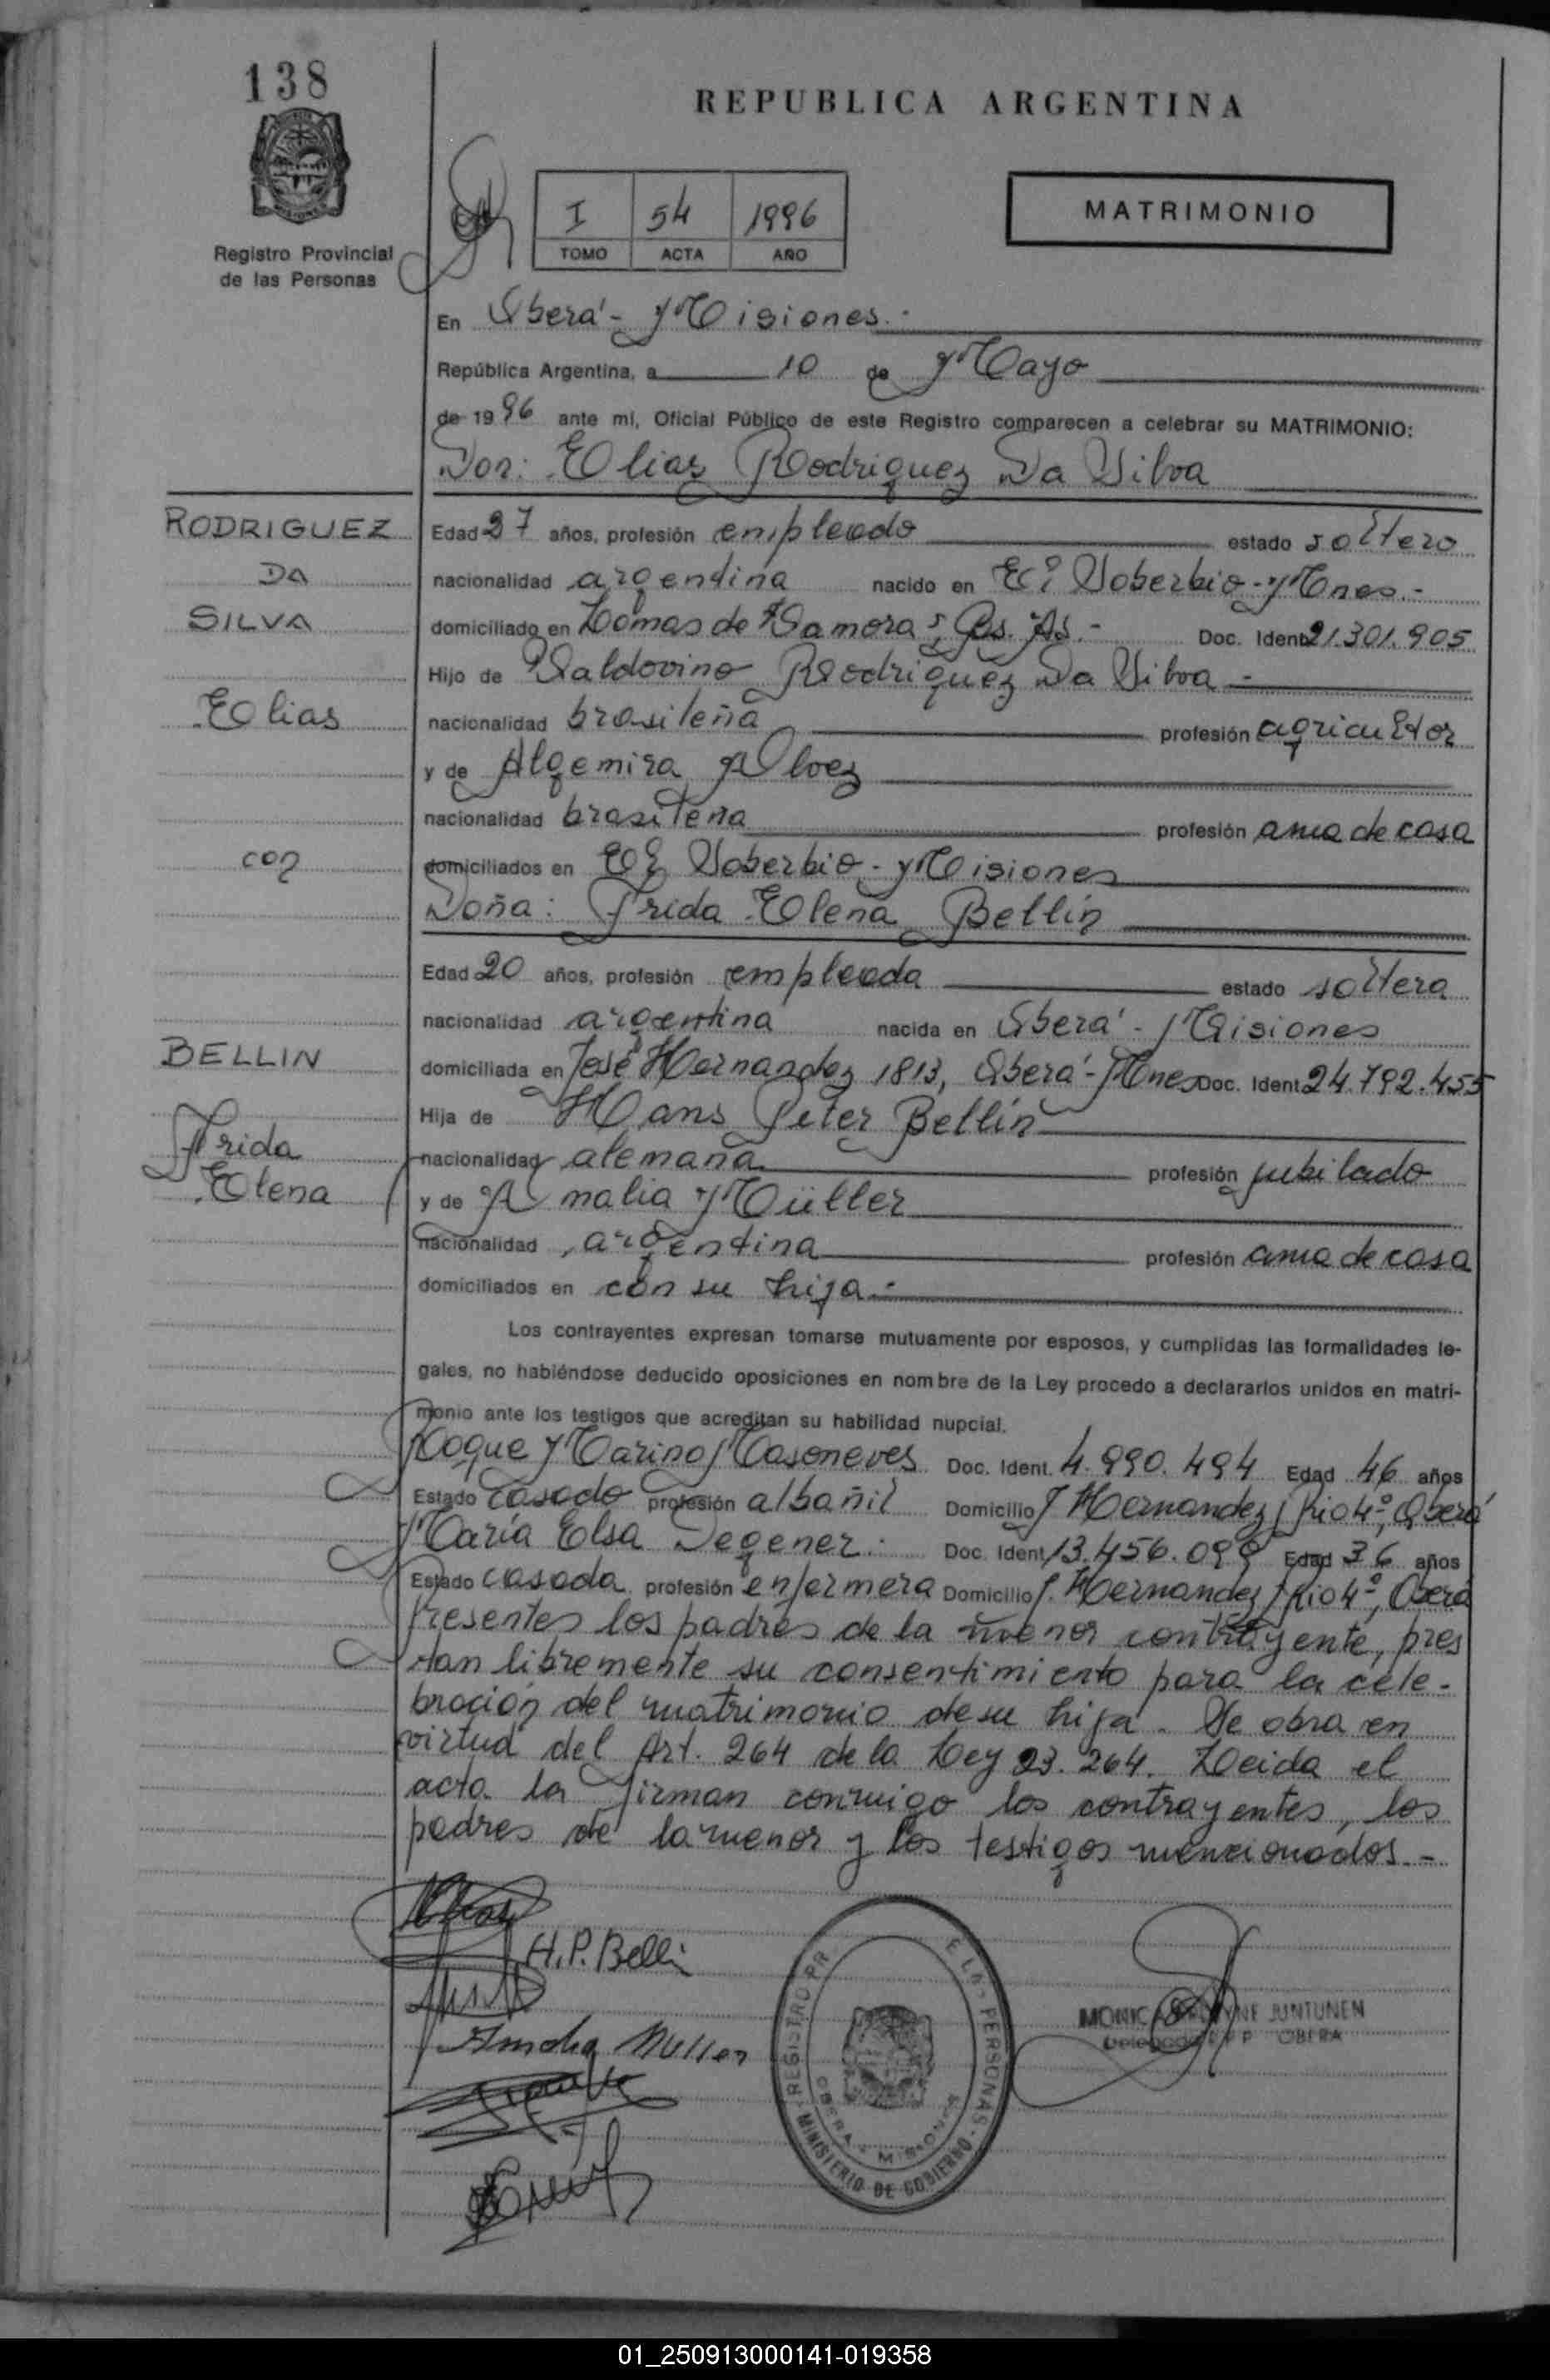 138
REPUBLICA ARGENTINA
I 54 1996
TOMO ACTA AÑO
MATRIMONIO
Registro Provincial
de las Personas
En Oberá - Misiones.-
República Argentina, a 10 de Mayo
de 1996 ante mi, Oficial Público de este Registro comparecen a celebrar su MATRIMONIO:
Don: Elias Rodriguez Da Silva
RODRIGUEZ
DA
SILVA
Elias
con
BELLIN
Frida
Elena
Edad 27 años, profesión empleado estado soltero
nacionalidad argentina nacido en El Soberbio - Mnes.-
domiciliado en Lomas de Zamora, Bs. As.- Doc. Ident 21.301.905
Hijo de Valdovino Rodriguez Da Silva -
nacionalidad brasileña profesión agricultor
y de Algemira Alvez
nacionalidad brasileña profesión ama de casa
domiciliados en El Soberbio - Misiones
Doña: Frida Elena Bellin
Edad 20 años, profesión empleada estado soltera
nacionalidad argentina nacida en Oberá - Misiones
domiciliada en José Hernandez 1813, Oberá - Mnes Doc. Ident. 24.792.455
Hija de Hans Peter Bellin
nacionalidad alemana profesión jubilado
y de Amalia Müller
nacionalidad argentina profesión ama de casa
domiciliados en con su hija.-
Los contrayentes expresan tomarse mutuamente por esposos, y cumplidas las formalidades le-
gales, no habiéndose deducido oposiciones en nombre de la Ley procedo a declararlos unidos en matri-
monio ante los testigos que acreditan su habilidad nupcial.
Roque Marino Masoneves Doc. Ident. 4.990.494 Edad 46 años
Estado casado profesión albañil Domicilio J Hernandez, Brio 4º, Oberá
María Elsa Degener. Doc. Ident 13.456.099 Edad 36 años
Estado casada profesión enfermera Domicilio J. Hernandez, Brio 4º, Oberá
Presentes los padres de la menor contrayente, pres
tan libremente su consentimiento para la cele-
bración del matrimonio de su hija. Se obra en
virtud del Art. 264 de la Ley 23.264. Leida el
acta la firman conmigo los contrayentes, los
padres de la menor y los testigos mencionados.-
H.P. Bellin
Amalia Muller
REGISTRO PR E LAS PERSONAS - MINISTERIO DE GOBIERNO -
OBERA - MISIONES
MONICA NE JUNTUNEN
Delegada R P P OBERA
01_250913000141-019358